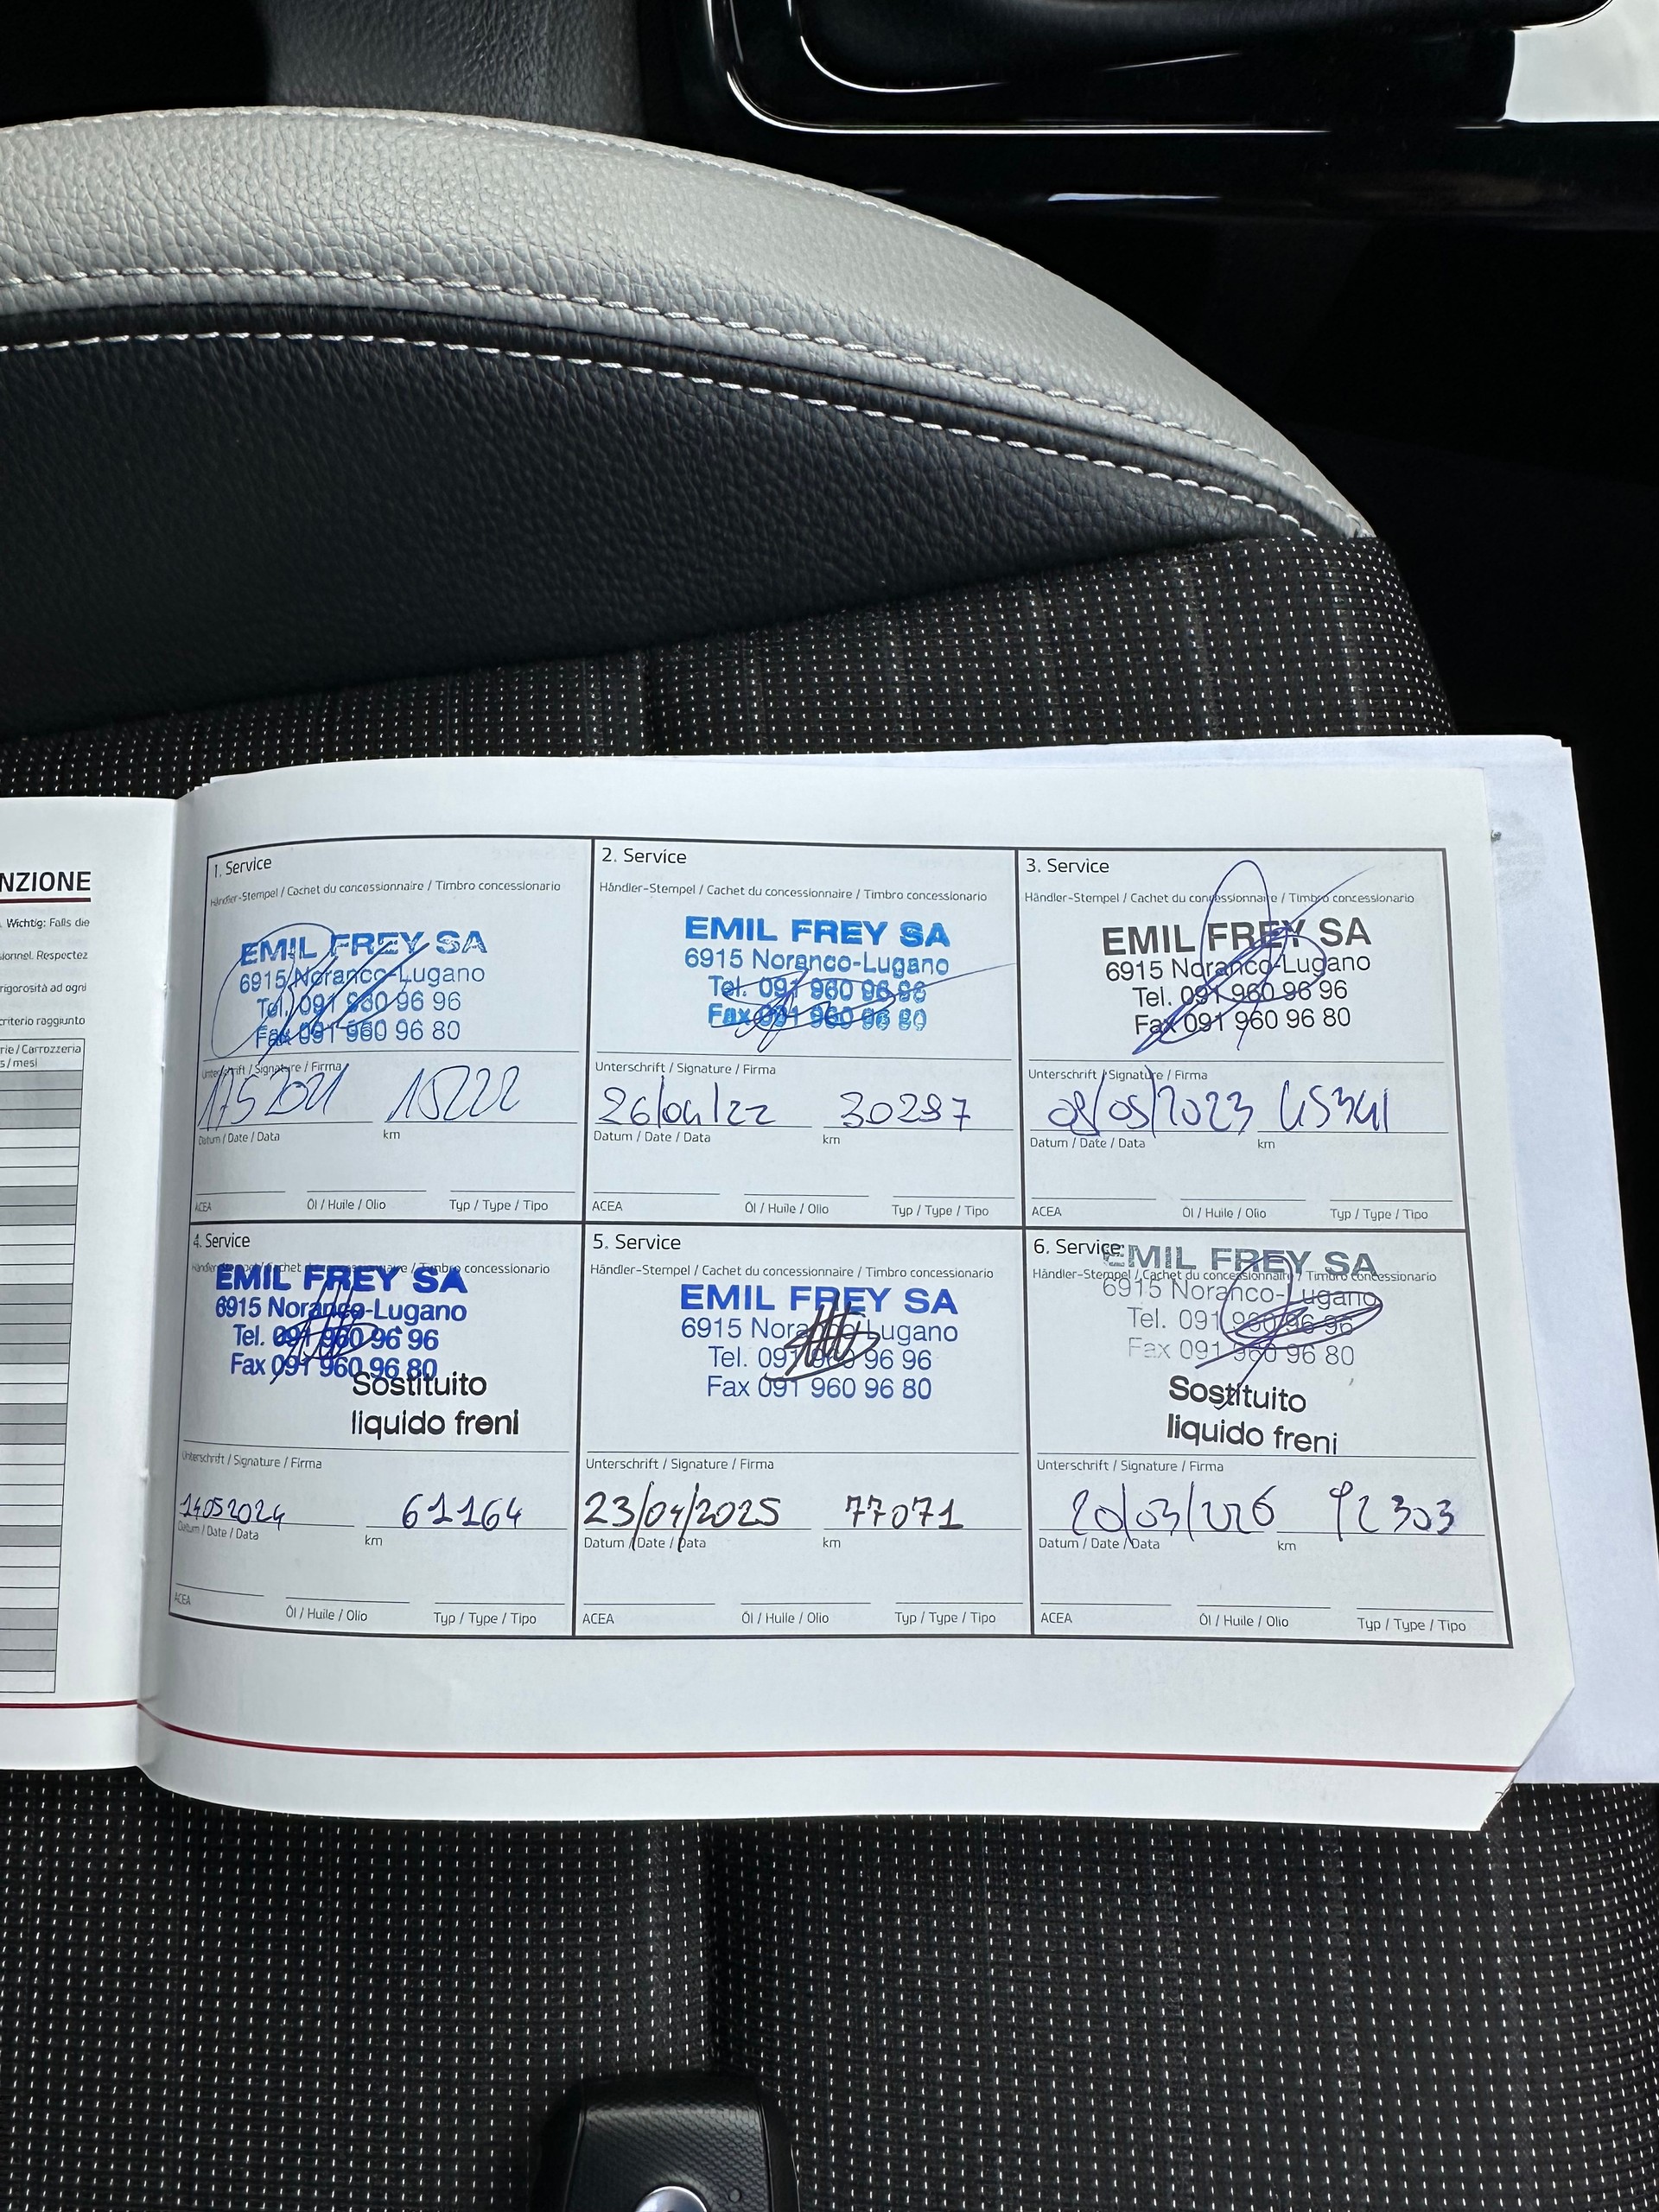 NZIONE
Wichtig: Falls die
sionnel. Respectez
rigorosità ad ogni
criterio raggiunto
rie / Carrozzeria
s / mesi
1. Service
Händler-Stempel / Cachet du concessionnaire / Timbro concessionario
EMIL FREY SA
6915 Noranco-Lugano
Tel. 091 960 96 96
Fax 091 960 96 80
Unterschrift / Signature / Firma
175 2021 15222
Datum / Date / Data km
ACEA Öl / Huile / Olio Typ / Type / Tipo
2. Service
Händler-Stempel / Cachet du concessionnaire / Timbro concessionario
EMIL FREY SA
6915 Noranco-Lugano
Tel. 091 960 96 96
Fax 091 960 96 80
Unterschrift / Signature / Firma
26/04/22 30297
Datum / Date / Data km
ACEA Öl / Huile / Olio Typ / Type / Tipo
3. Service
Händler-Stempel / Cachet du concessionnaire / Timbro concessionario
EMIL FREY SA
6915 Noranco-Lugano
Tel. 091 960 96 96
Fax 091 960 96 80
Unterschrift / Signature / Firma
08/05/2023 45341
Datum / Date / Data km
ACEA Öl / Huile / Olio Typ / Type / Tipo
4. Service
Händler-Stempel / Cachet du concessionnaire / Timbro concessionario
EMIL FREY SA
6915 Noranco-Lugano
Tel. 091 960 96 96
Fax 091 960 96 80
Sostituito
liquido freni
Unterschrift / Signature / Firma
14052024 61164
Datum / Date / Data km
ACEA Öl / Huile / Olio Typ / Type / Tipo
5. Service
Händler-Stempel / Cachet du concessionnaire / Timbro concessionario
EMIL FREY SA
6915 Noranco-Lugano
Tel. 091 960 96 96
Fax 091 960 96 80
Unterschrift / Signature / Firma
23/04/2025 77071
Datum / Date / Data km
ACEA Öl / Huile / Olio Typ / Type / Tipo
6. Service
Händler-Stempel / Cachet du concessionnaire / Timbro concessionario
EMIL FREY SA
6915 Noranco-Lugano
Tel. 091 960 96 96
Fax 091 960 96 80
Sostituito
liquido freni
Unterschrift / Signature / Firma
20/03/2026 92303
Datum / Date / Data km
ACEA Öl / Huile / Olio Typ / Type / Tipo